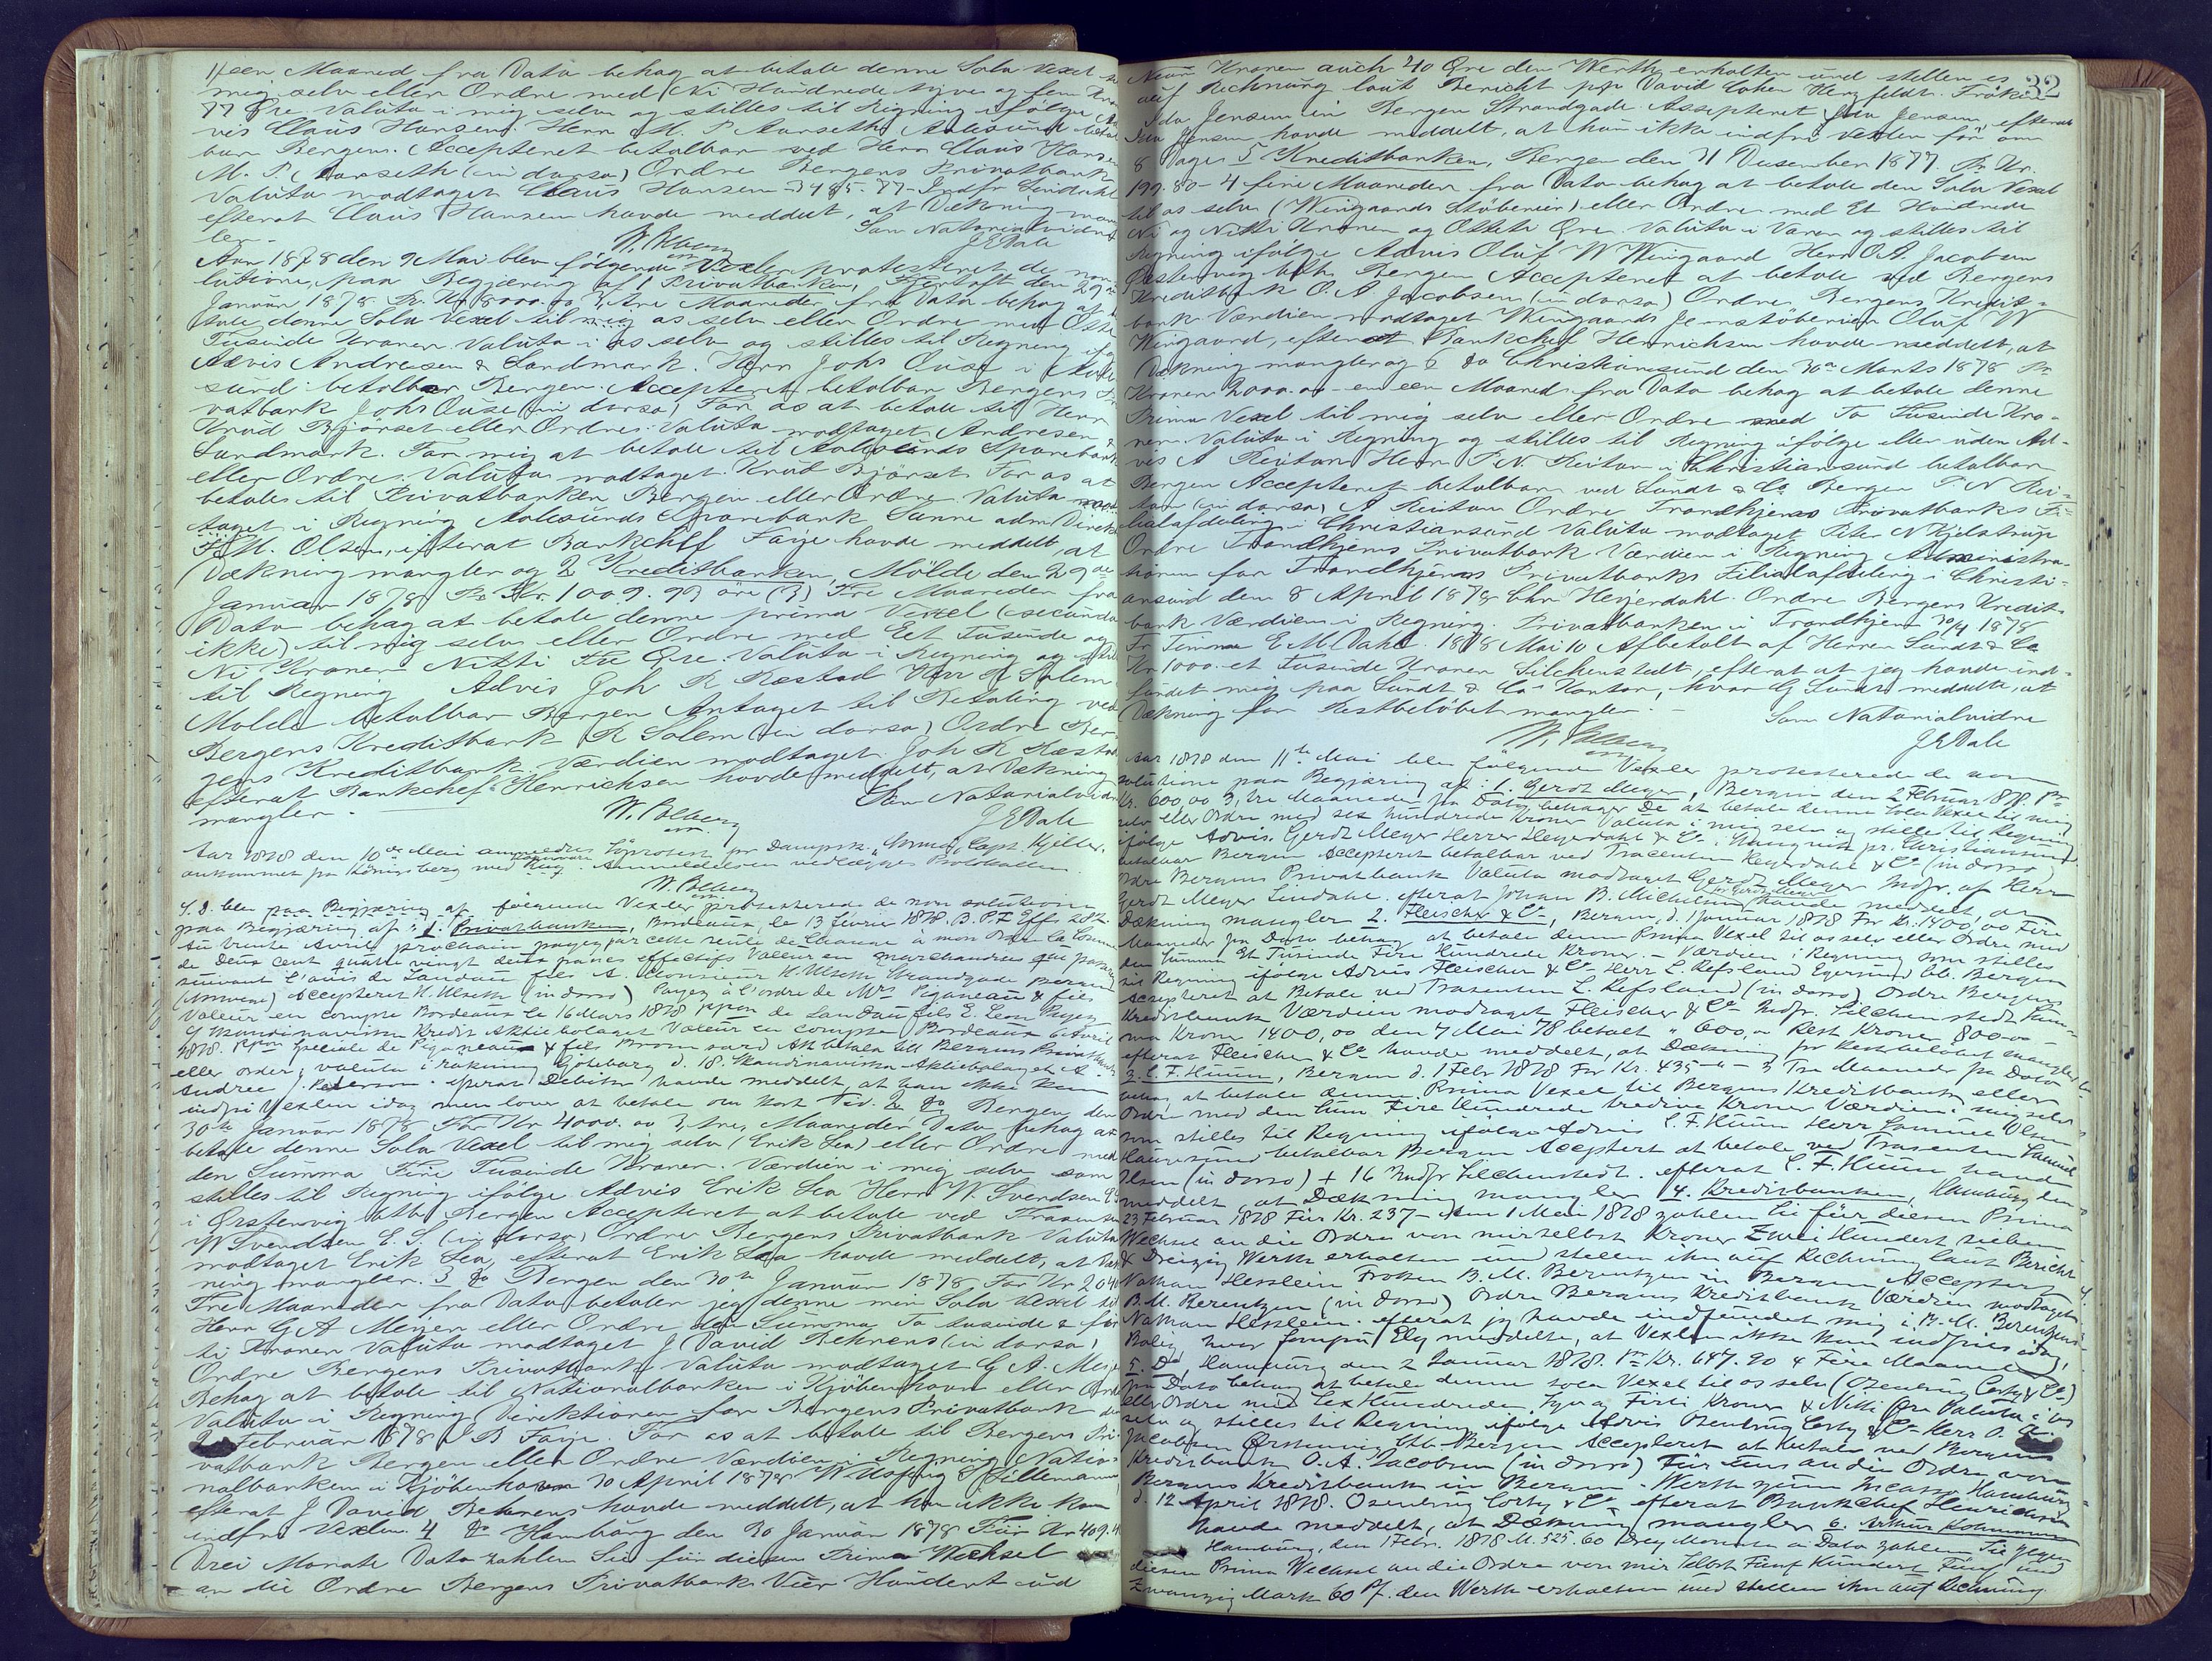 1/een Maaned fra Dato behag at betale denne Sola Vexel til
mig selv eller Ordre med Ni Hundrede tyve og fem Kroner
77 Øre Valuta i mig selv og stilles til Regning ifølge Ad
vis Claus Hansen. Herr M. P. Aarseth Aalesund betal
bar Bergen. Accepteret betalbar ved Herr Claus Hansen
M. P. Aarseth (in dorso) Ordre Bergens Privatbank
Valuta modtaget Claus Hansen
efterat Claus Hansen havde meddelt, at Dækning mang
ler.- Som Notarialvidne
J E Dale
Aar 1878 den 9 Mai blev følgende Vexler protesteret de non so
lutione, paa Begjæring af 1 Privatbanken, den 29
Januar 1878 Pr. Kr 8000.00 3, tre Maaneder fra Dato behag at be
tale denne Sola Vexel til os selv eller Ordre med Otte
Tusinde Kroner. Valuta i os selv og stilles til Regning ifølge
Advis Andresen & Landmark. Herr Johs Ouse i Aale
sund betalbar Bergen. Accepteret betalbar Bergens Pri
vatbank Johs Ouse (in dorso) For os at betale til Herr
Knud Bjørset eller Ordre. Valuta modtaget Andresen &
Landmark. For mig at betale til Aalesunds Sparebank
eller Ordre. Valuta modtaget. Knud Bjørset. For os at
betales til Privatbanken Bergen eller Ordre Valuta mod
taget i Regning Aalesunds Sparebank Sanne adm. Direktør
Fr. M. Olsen, efterat Bankchef Faye havde meddelt, at
Dækning mangler og 2 Kreditbanken, Molde den 29de
Januar 1878 Pr Kr. 1009. 93 öre (3) Tre Maaneder fra
Dato behag at betale denne prima Vexel (secunda
ikke) til mig selv eller Ordre med Eet Tusinde og
Ni Kroner Nitti tre Øre. Valuta i Regning og stilles
til Regning Advis Joh R Ræstad Herr R Solem
Molde betalbar Bergen Antaget til Betaling ved
Bergens Kreditbank R Solem (in dorso) Ordre Ber
gens Kreditbank. Værdien modtaget. Joh R Ræstad
efterat Bankchef Henrichsen havde meddelt, at Dækning
mangler.- Som Notarialvidne
J E Dale
Aar 1878 den 10de Mai anmeldtes Søprotest for Dampsk. Capt. Kjeller.
ankommet fra Königsberg med Rug. Anmeldelsen vedlægges Protokollen.
S. D. blev paa Begjæring af følgende Vexler protesterede de non solutione
paa Begjæring af "1. Privatbanken, Bordeaux, le 13 fevrier 1878. B. P. F Eff. 282.
Au trente Avril prochain payez par cette seule de Change à mon Ordre la Somme
de Deux cent quatre vingt deux francs effectifs Valeur en marchandises que passerez
suivant l'avis de Landau fils A. Monsieur H. Ulseth Strandgade Bergen
(Norvège) Accepteret H. Ulseth (in dorso) Payez à l'ordre de Mrs Piganeau & fils
Valeur en compte Bordeaux le 16 Mars 1878 ppon de Landau fils E. Leon Meyer
Skandinaviska Kredit Aktiebolaget Valeur en compte Bordeaux 6 Avril
1878. Ppon Speciale de Piganeau & fils Att betala till Bergens Privatbank
eller order, valuta i räkning Göteborg d. 18. Skandinaviska Aktiebolaget
Andree Peterson. efterat Debitor havde meddelt, at han ikke kan
indfri Vexlen idag men lover at betale om kort Tid. 2 do Bergen den
30te Januar 1878 For Kr 4000.00 3, tre, Maaneder Dato behag at
betale denne Sola Vexel til mig selv (Erik Lea) eller Ordre med
den Summa Fire Tusinde Kroner. Værdien i mig selv som
stilles til Regning ifølge Advis Erik Lea Herr W. Svendsen E S
i Ørstenvig btb. Bergen Accepteret at betale ved Trasenten
W Svendsen E. S. (in dorso) Ordre Bergens Privatbank Valuta
modtaget Erik Lea, efterat Erik Lea havde meddelt, at Dæk
ning mangler. 3 do Bergen den 30te Januar 1878 For Kr 2040
Tre Maaneder fra Dato betaler jeg denne min Sola Vexel til
Herr G A Meyer eller Ordre den Summa To tusinde & før
ti Kroner Valuta modtaget J David Behrens (in dorso)
Ordre Bergens Privatbank Valuta modtaget G A. Meyer
Behag at betale til Nationalbanken i Kjöbenhavn eller Ordre
Valuta i Regning Direktionen for Bergens Privatbank den
Februar 1878 J B Faye. For os at betale til Bergens Pri
vatbank Bergen eller Ordre Værdien i Regning Natio-
nalbanken i Kjöbenhavn 30 April 1878
efterat J David Behrens havde meddelt, at han ikke kan
indfri Vexlen. 4 do Hamburg den 30 Januar 1878 Für Kr 409.40
Drei Monate Dato zahlen Sie für diesen Prima Wechsel
an die Ordre Bergens Privatbank Vier Hundert und
32
Neun Kronen auch 40 Øre den Werth erhalten und stellen es
auf Rechnung laut Bericht ppa David Cohen Herzfeldt. Fröken
Ida Jensen in Bergen Strandgade. Accepteret Ida Jensen, efterat
Ida Jensen havde meddelt, at hun ikke indfri Vexlen før om
8 Dage. 5 Kreditbanken, Bergen den 31 December 1877 Pr. Kr.
199.80 - 4 fire Maaneder fra Dato behag at betale den Sola Vexel
til os selv (Wingaards Støberier) eller Ordre med Et Hundrede
Ni og Nitti Kroner og Otteti Øre. Valuta i Varer og stilles til
Regning ifølge Advis Oluf W Wingaard Herr O. A. Jacobsen
Østenvig btb. Bergen Accepteret at betale ved Bergens
Kreditbank O. A. Jacobsen (in dorso) Ordre Bergens Kredit-
bank Værdien modtaget Wingaards Jernstøberier Oluf W
Wingaard, efterat Bankchef Henrichsen havde meddelt, at
Dækning mangler og 6 do Christiansund den 30te Marts 1878 Pr
Kroner 2000.00 - en een Maaned fra Dato behag at betale denne
Prima Vexel til mig selv eller Ordre med To Tusinde Kro-
ner. Valuta i Regning og stilles til Regning ifølge eller uden Ad-
vis A Reitan Herr P. N. Reitan i Christiansund betalbar
Bergen Accepteret betalbar ved Sundt & Co Bergen P. N Rei-
tan (in dorso) A Reitan Ordre Trondhjems Privatbanks Fi-
lialafdeling i Christiansund Valuta modtaget Peter N Kjelstrup
Ordre Trondhjems Privatbank Værdien i Regning Administra-
tionen for Trondhjems Privatbanks Filialafdeling i Christi-
ansund den 8 April 1878 Chr Heyerdahl. Ordre Bergens Kredit-
bank Værdien i Regning. Privatbanken i Trondhjem 30/4 1878
Fr Timme E. M. Dahl. 1878 Mai 10 Afbetalt af Herrer Sundt & Co
Kr 1000. et Tusinde Kroner Lilchenstedt, efterat at jeg havde ind-
fundet mig paa Sundt & Co's Kontor, hvor Sundt meddelte, at
Dækning for Restbeløbet mangler.- Som Notarialvidne
J E Dale
Aar 1878 den 11te Mai blev følgende Vexler protesterede de non
solutione paa Begjæring af: 1. Gerdt Meyer, Bergen den 2 Februar 1878. Pr
Kr. 600,00 3, tre Maaneder fra Dato, behager De at betale denne Sola Vexel til mig
selv eller Ordre med sex hundrede Kroner Valuta i mig selv og stilles til Regning
ifølge Advis. Gerdt Meyer Herrer Heyerdahl & Co. pr. Christiansund
betalbar Bergen. Accepteret betalbar ved Trasenten Heyerdahl & Co (in dorso)
Ordre Bergens Privatbank Valuta modtaget Gerdt Meyer Indfr. af Herr
Gerdt Meyer Lindahl. efterat Johan B. Michelsen for Gerdt Meyer havde meddelt, at
Dækning mangler 2. Fleischer & Co, Bergen, d. Januar 1878 For Kr. 1400,00 Fire
Maaneder fra Dato behag at betale denne Prima Vexel til os selv eller Ordre med
den Summa Et Tusinde Fire Hundrede Kroner. - Værdien i Regning som stilles
til Regning ifølge Advis Fleischer & Co Herr L. Refsland Egersund btb. Bergen
Accepteret at Betale ved Trasenten L Refsland (in dorso) Ordre Bergens
Kreditbank Værdien modtaget Fleischer & Co Indfr. Lilchenstedt Sum-
ma Kroner 1400,00 den 7 Mai 78 betalt " 600,00 Rest Kroner 800.00 -
efterat Fleischer & Co havde meddelt, at Dækning for Restbeløbet mangler
3. C. F. Huun, Bergen d. 1 Febr 1878 For Kr. 435 - 3 Tre Maaneder fra Dato be-
hag at betale denne Prima Vexel til Bergens Kreditbank eller
Ordre med den Sum Fire Hundrede tredive Kroner Værdien i mig selv
som stilles til Regning ifølge Advis C. F. Huun Herr Samuel Olsen
Haugesund betalbar Bergen Accepteret at betale ved Trasenten Samuel
Olsen (in dorso) + 16 Indfr Lilchenstedt. efterat C. F. Huun havde
meddelt, at Dækning mangler 4. Kreditbanken, Hamburg den
23 Februar 1878 Für Kr. 237 - Am 1 Mai 1878 zahlen Sie für diesen Prima
Wechsel an die Ordre von mir selbst Kroner Zwei Hundert sieben
& Dreizig Werth erhalten und stellen ihn auf Rechnung laut Bericht
Nathan Hesslein Frøken B. M. Berentzen in Bergen Accepteret
B. M. Berentzen (in dorso) Ordre Bergens Kreditbank Værdien modtaget
Nathan Hesslein. efterat jeg havde indfundet mig i B. M. Berentzens
Bolig, hvor Jomfru Ely meddelte, at Vexlen ikke kan indfries idag,
5. Do Hamburg den 2 Januar 1878. Pr Kr. 647.90 4 Fire Maaneder
fra Dato behag at betale denne Sola Vexel til os selv (Osenbrug Corty & Co)
eller Ordre med Sex Hundrede Syv og Firti Kroner & Nitti Øre Valuta i os
selv og stilles til Regning ifølge Advis Osenbrug Corty & Co Herr O. A.
Jacobsen Ørstenvig btb. Bergen Accepteret at betale ved Bergens
Kreditbank O. A. Jacobsen (in dorso) Für uns an die Ordre von
Bergens Kreditbank in Bergen. Werth zum Incasso Hamburg
d. 12 April 1878. Osenbrug Corty & Co efterat Bankchef Henrichsen
havde meddelt, at Dækning mangler 6. Arthur Kohmann
Hamburg, den 1 Febr. 1878 M. 525.60 Drey Monate a Dato zahlen Sie gegen
diesen Prima Wechsel an die Ordre von mir selbst Fünf Hundert Fünf und
Zwanzig Mark 60 Pf. den Werth erhalten und stellen ihn auf Rechnung